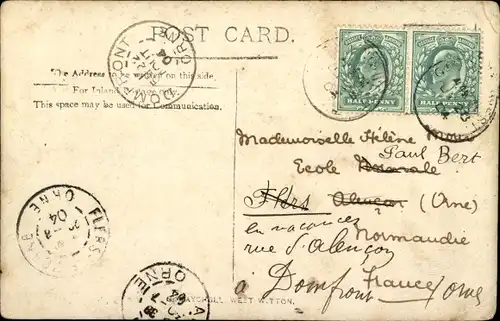 POST CARD.
The Address to be written on this side.
For Inland Postage only.
This space may be used for Communication.
HALF PENNY HALF PENNY
Mademoiselle Hélène
Ecole Normale Paul Bert
Flers Alençon (Orne)
en vacances Normandie
rue d'Alençon
à Domfront France Orne
WEST WITTON.
DOMFRONT
ORNE
FLERS
ORNE
04
ORNE